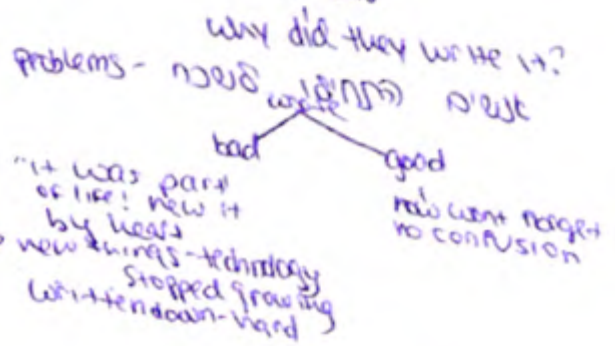 why did they write it?
problems - אנשים התחילו לשכוח
write
bad
good
"it was part
of life! new it
by heart
new things - technology
stopped growing
written down - hard
now wont forget
no confusion